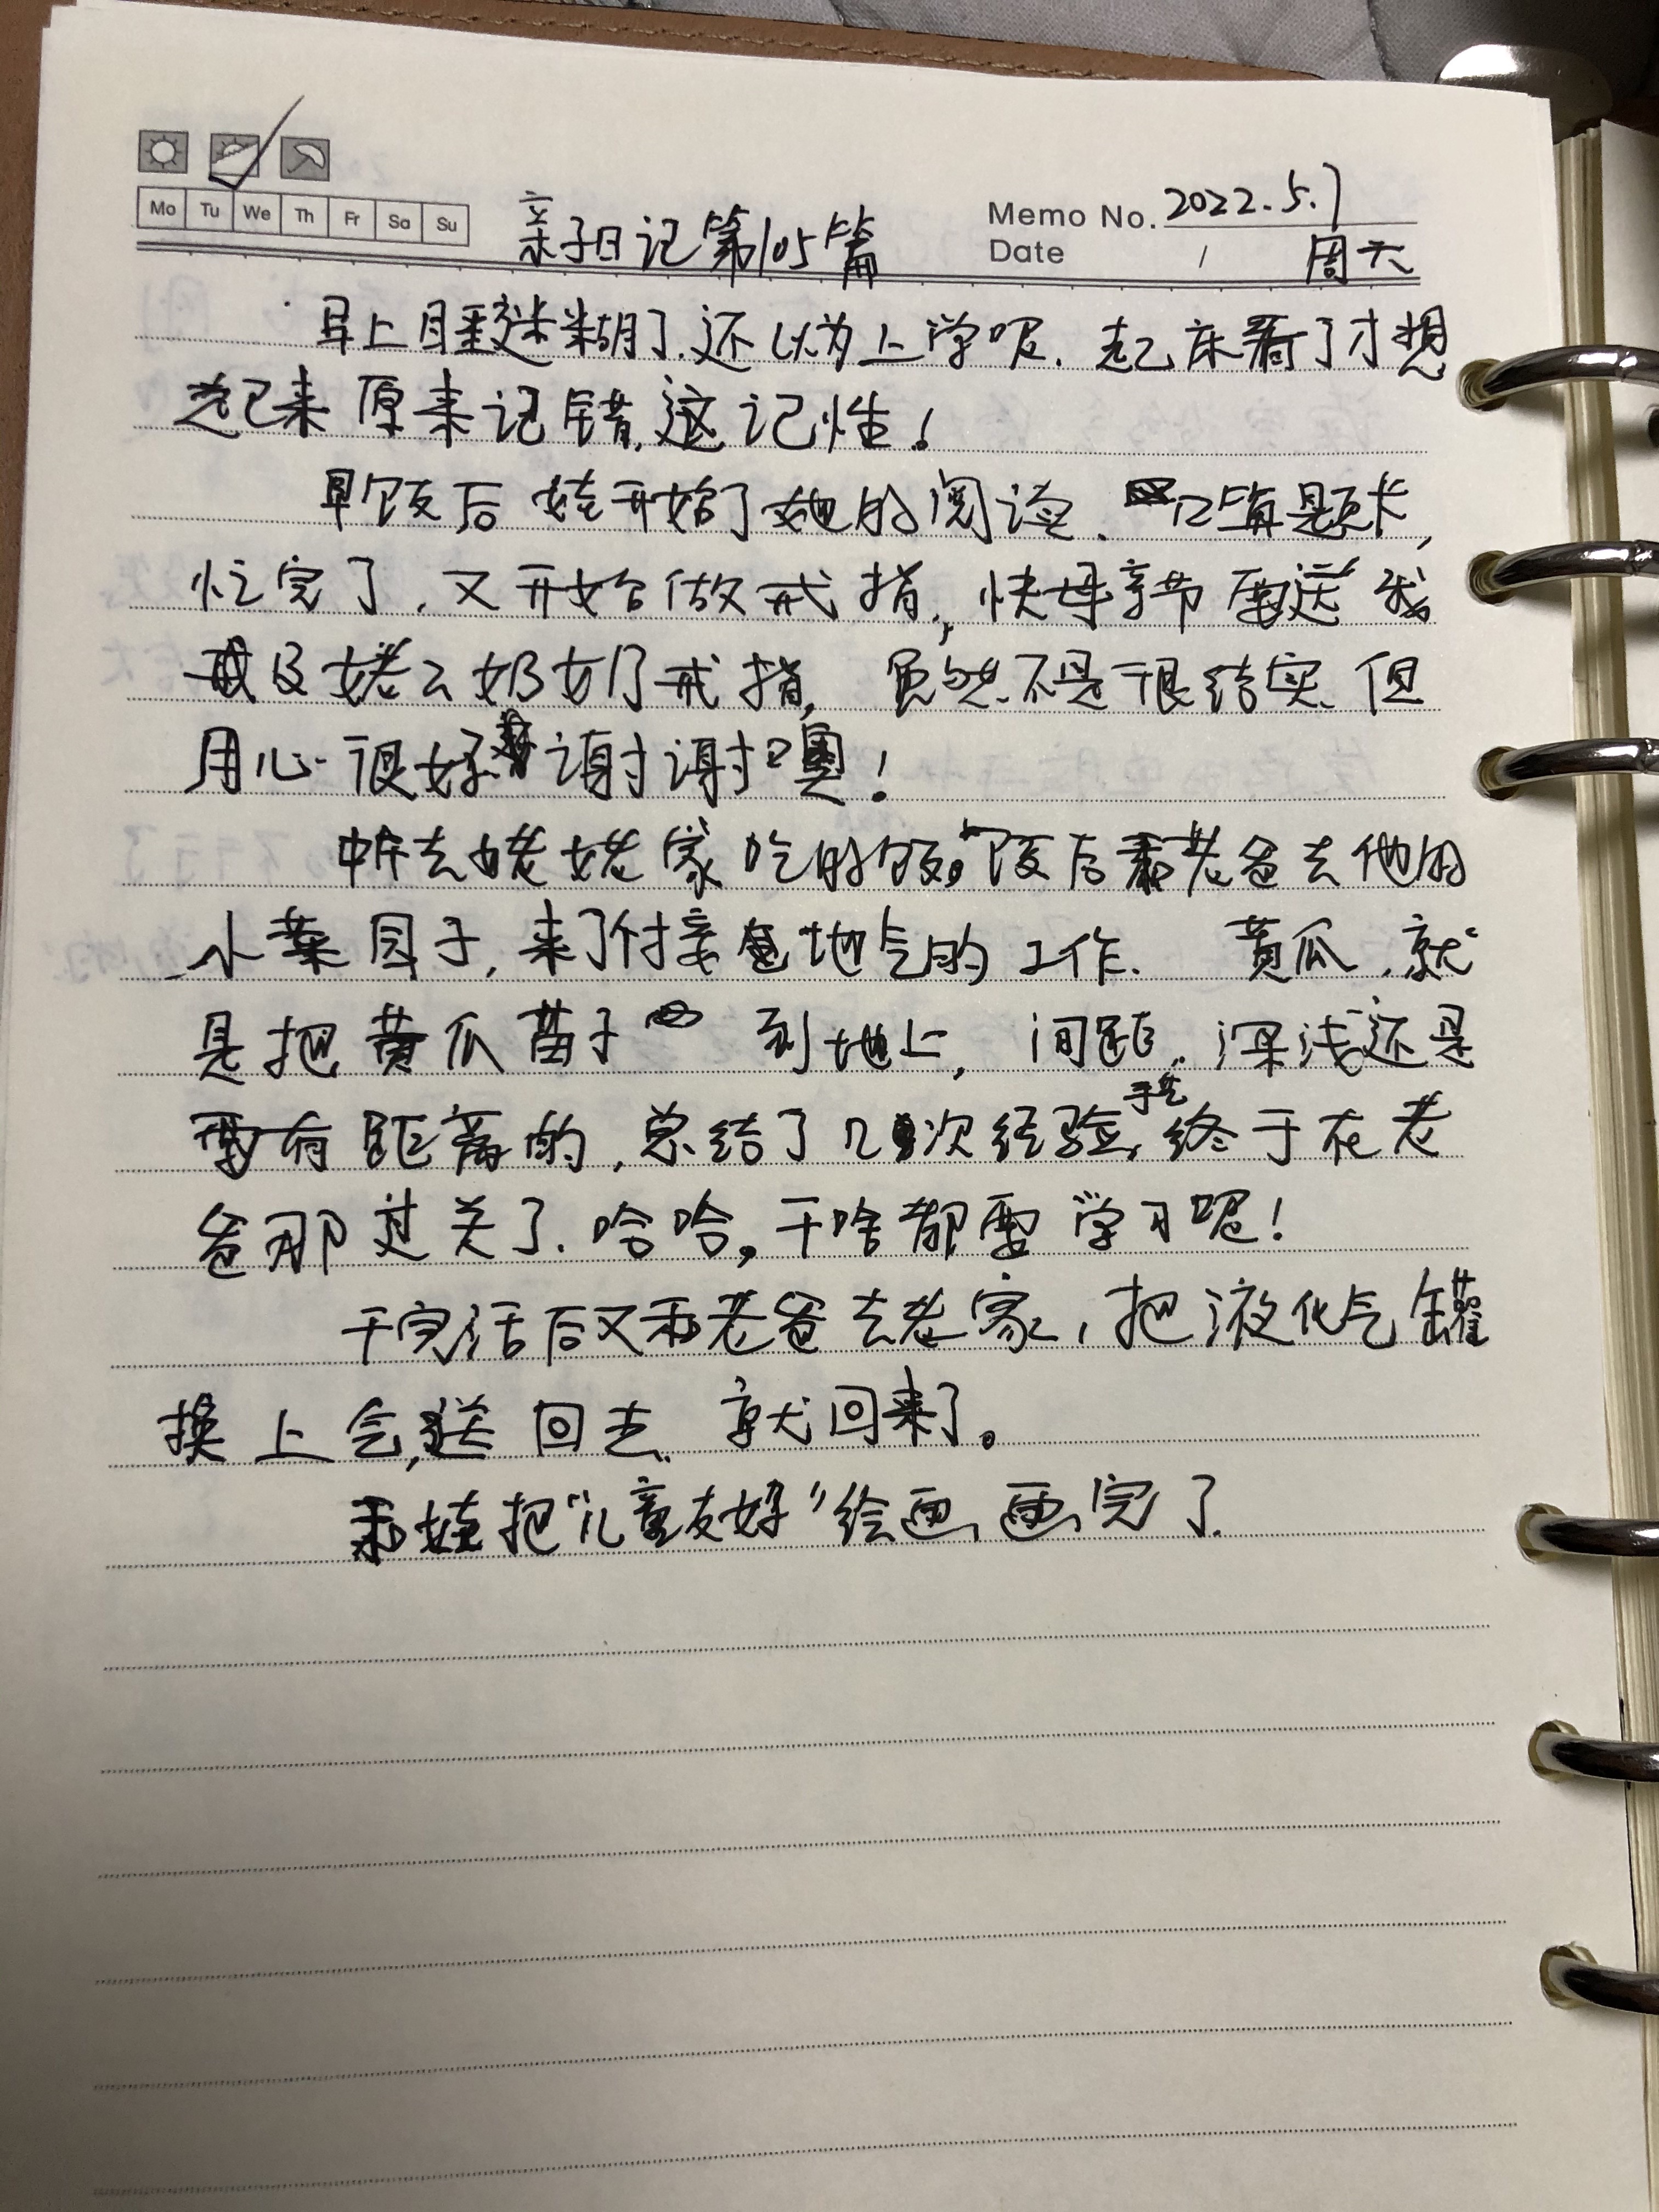 Mo Tu We Th Fr Sa Su
亲子日记第105篇
Memo No. 2022.5.7
Date / 周六
早上睡迷糊了.还以为上学呢.起床看了才想
起来原来记错,这记性!
早饭后娃开始了她的阅读、口算题卡,
忙完了,又开始做戒指,快母亲节要送我
及姥云奶奶戒指,虽然不是很结实,但
用心很好 谢谢噢!
中午去姥姥家吃的饭。饭后和老爸去他的
小菜园子,来了付接地气的工作. 黄瓜,就
是把黄瓜苗子 到地上,间距,深浅还是
要有距离的,总结了几次经验,手艺终于在老
爸那过关了.哈哈,干啥都要学习呢!
干完活后又和老爸去老家,把液化气罐
换上气,送回去.就回来了。
和娃把“儿童友好”绘画画完了.